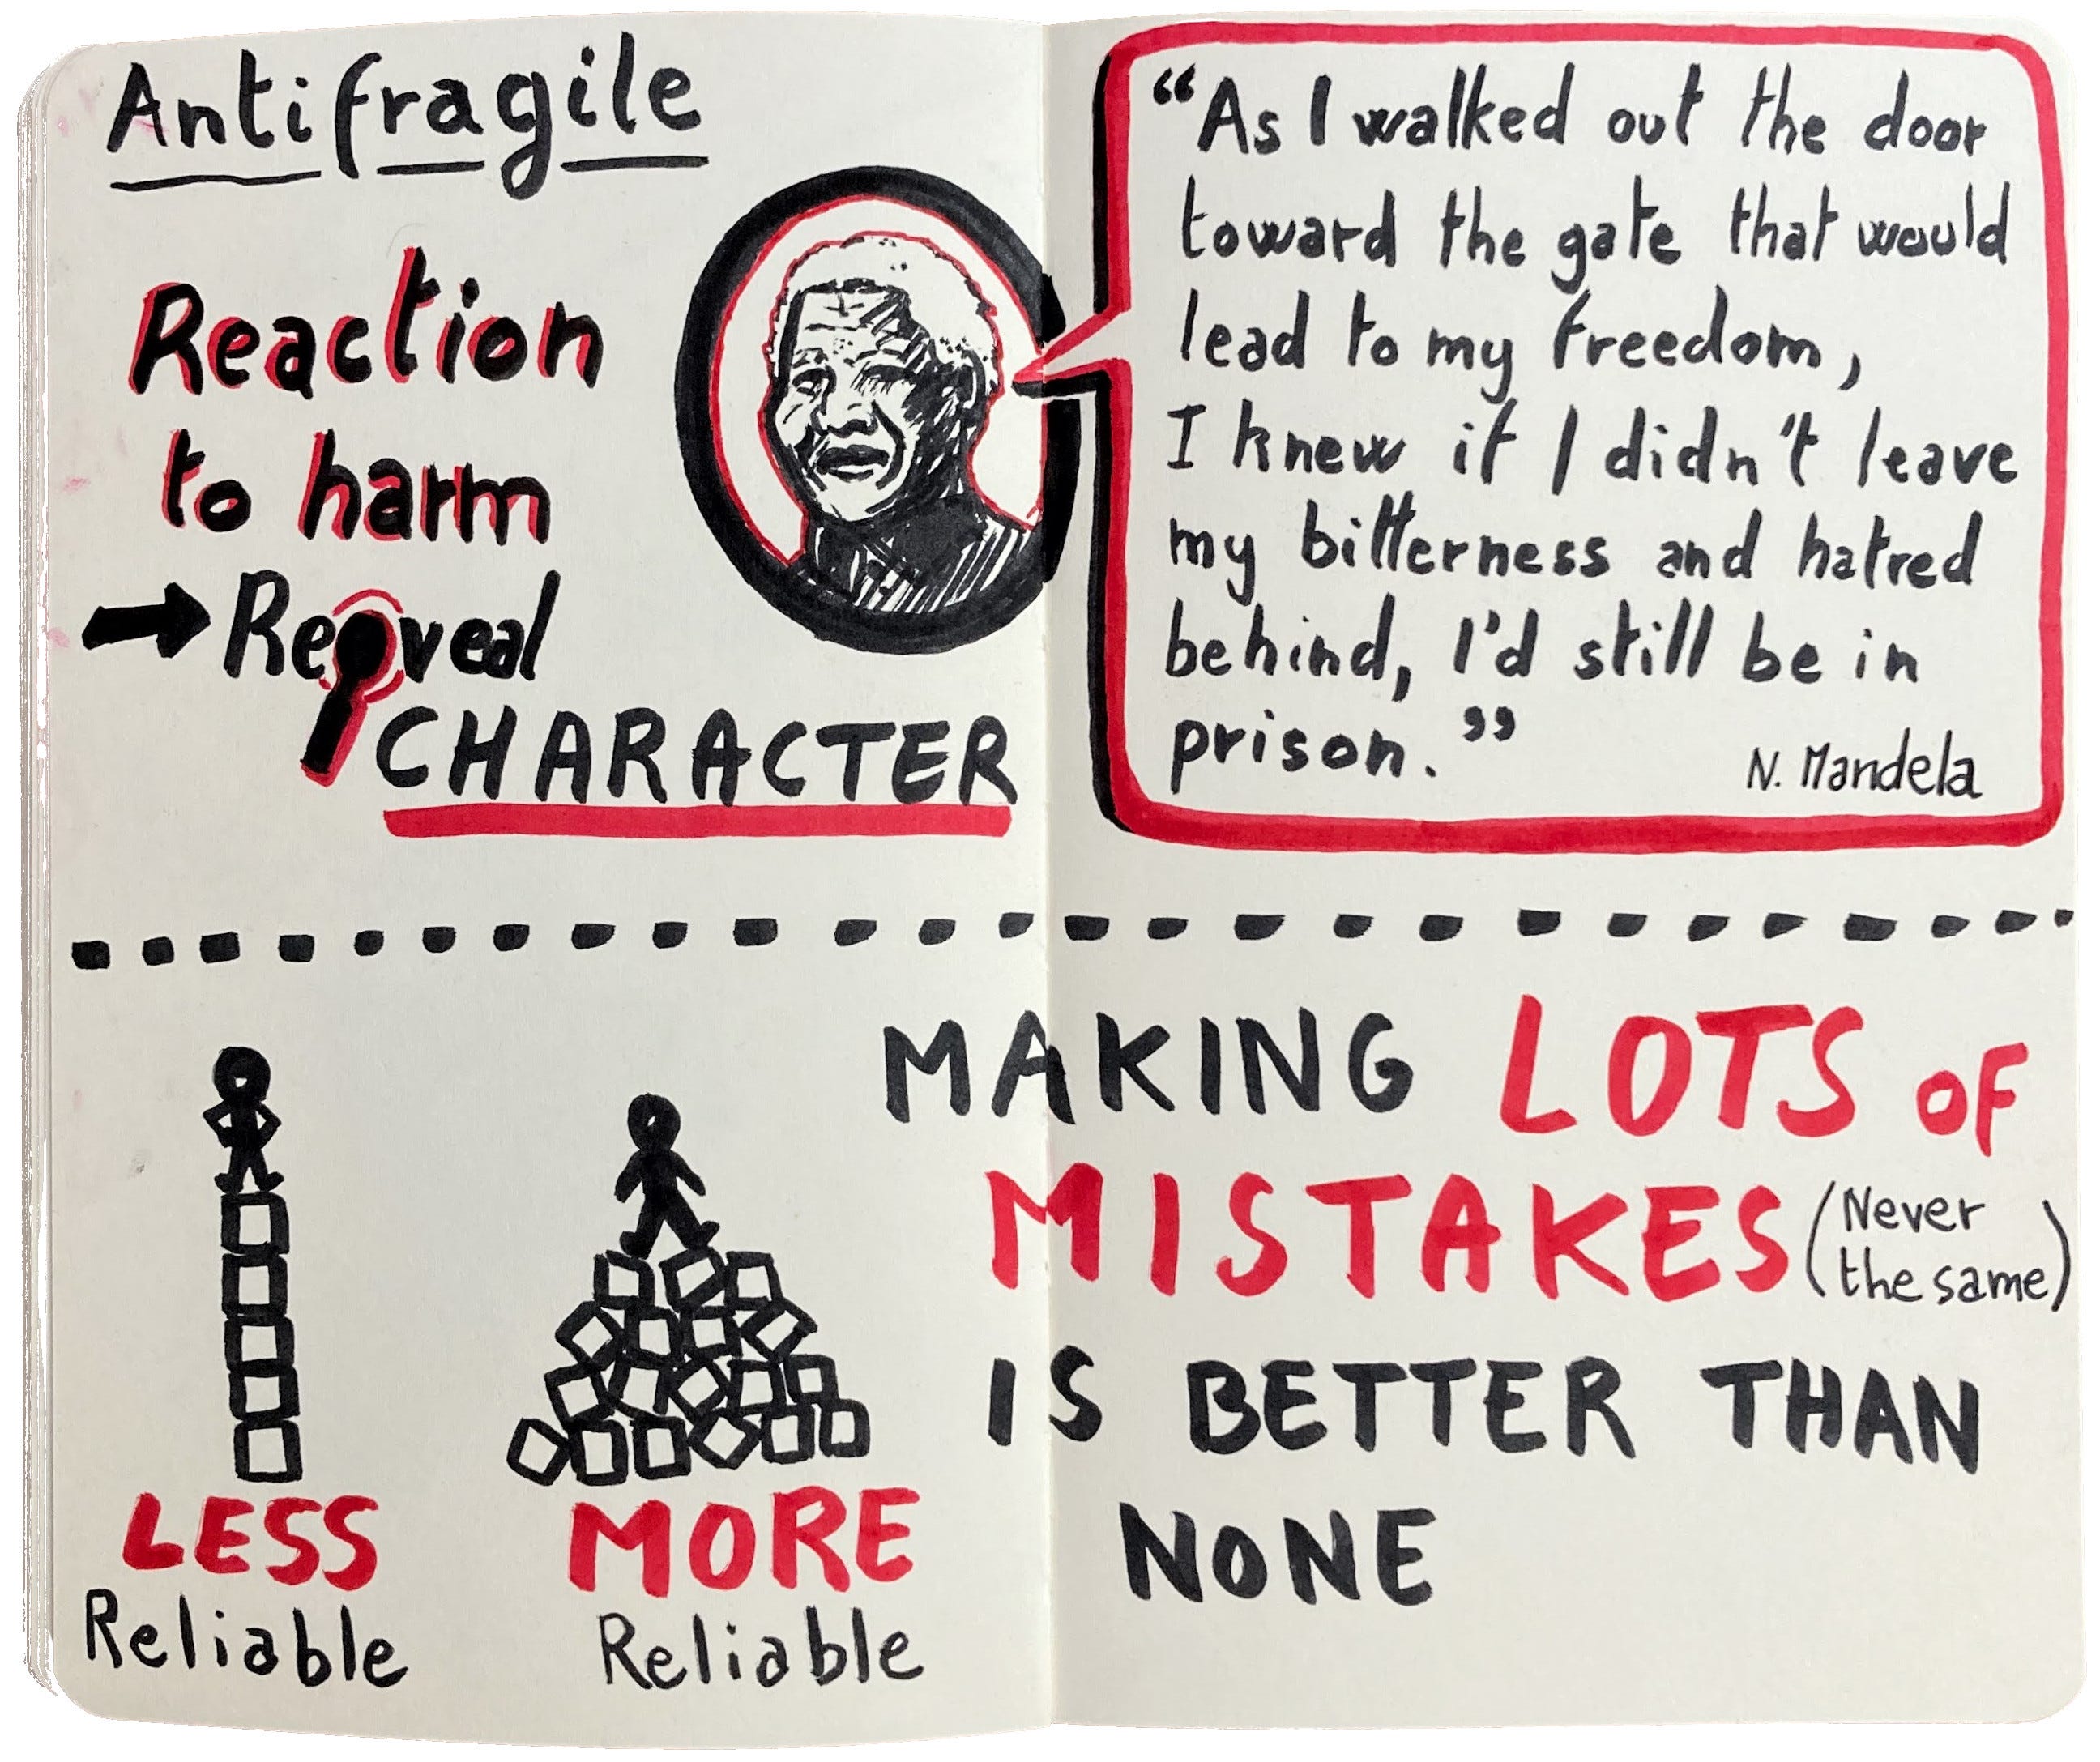 Antifragile
Reaction
to harm
→ Reveal
CHARACTER
“As I walked out the door
toward the gate that would
lead to my freedom,
I knew if I didn't leave
my bitterness and hatred
behind, I'd still be in
prison.”
N. Mandela
LESS
Reliable
MORE
Reliable
MAKING LOTS OF
MISTAKES (Never
the same)
IS BETTER THAN
NONE